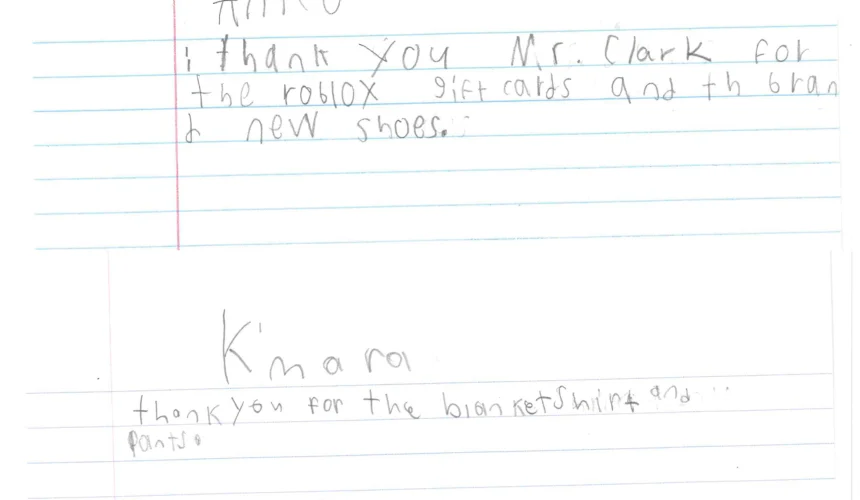 i thank you Mr. Clark for
the roblox gift cards and th bran
d new shoes.
K'mara
thank you for the blanket shirt and
pants.